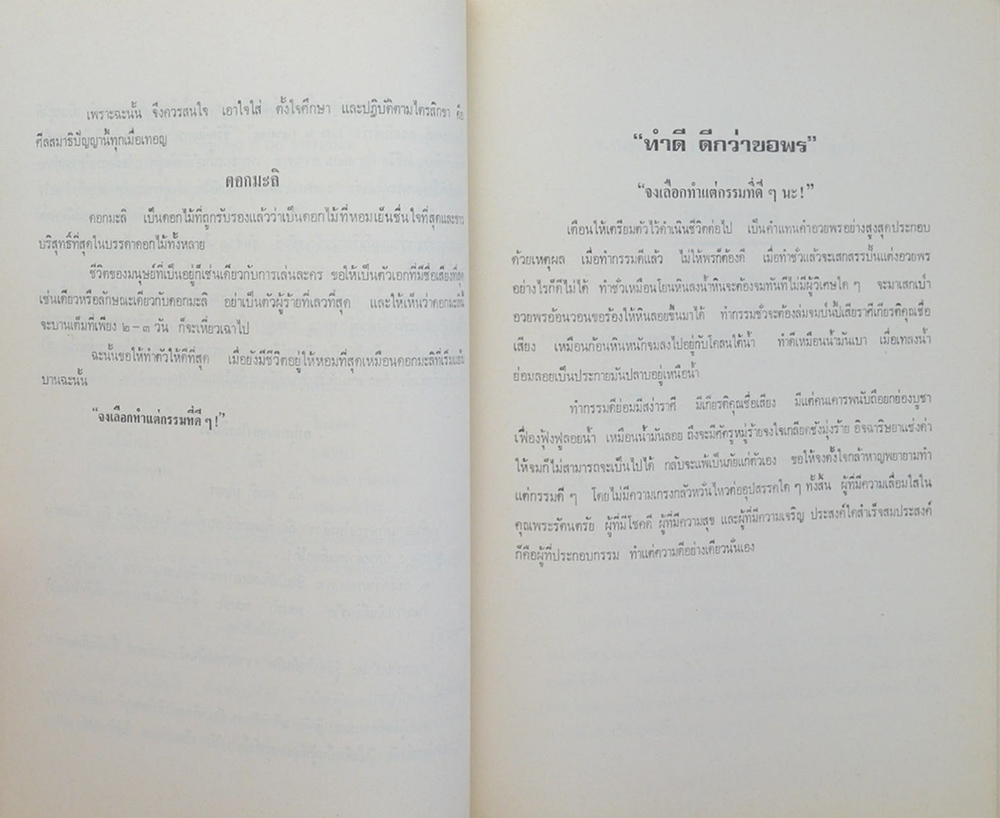 เพราะฉะนั้น จึงควรสนใจ เอาใจใส่ ตั้งใจศึกษา และปฏิบัติตามไตรสิกขา คือ
ศีลสมาธิปัญญานี้ทุกเมื่อเทอญ
ดอกมะลิ
ดอกมะลิ เป็นดอกไม้ที่ถูกรับรองแล้วว่าเป็นดอกไม้ที่หอมเย็นชื่นใจที่สุดและขาว
บริสุทธิ์ที่สุดในบรรดาดอกไม้ทั้งหลาย
ชีวิตของมนุษย์ที่เป็นอยู่ก็เช่นเดียวกับการเล่นละคร ขอให้เป็นตัวเอกที่มีชื่อเสียงที่สุด
เช่นเดียวหรือลักษณะเดียวกับดอกมะลิ อย่าเป็นตัวผู้ร้ายที่เลวที่สุด และให้เห็นว่าดอกมะลินี้
จะบานเต็มที่เพียง ๒ - ๓ วัน ก็จะเหี่ยวเฉาไป
ฉะนั้นขอให้ทำตัวให้ดีที่สุด เมื่อยังมีชีวิตอยู่ให้หอมที่สุดเหมือนดอกมะลิที่เริ่มแย้ม
บานฉะนั้น
“จงเลือกทำแต่กรรมที่ดี ๆ !”
“ทำดี ดีกว่าขอพร”
“จงเลือกทำแต่กรรมที่ดี ๆ นะ !”
เตือนให้เตรียมตัวไว้ดำเนินชีวิตต่อไป เป็นคำแทนคำอวยพรอย่างสูงสุดประกอบ
ด้วยเหตุผล เมื่อทำกรรมดีแล้ว ไม่ให้พรก็ต้องดี เมื่อทำชั่วแล้วจะเสกสรรปั้นแต่งอวยพร
อย่างไรก็ดีไม่ได้ ทำชั่วเหมือนโยนหินลงน้ำหินจะต้องจมทันทีไม่มีผู้วิเศษใด ๆ จะมาเสกเป่า
อวยพรอ้อนวอนขอร้องให้หินลอยขึ้นมาได้ ทำกรรมชั่วจะต้องล่มจมป่นปี้เสียราศีเกียรติคุณชื่อ
เสียง เหมือนก้อนหินหนักจมลงไปอยู่กับโคลนใต้น้ำ ทำดีเหมือนน้ำมันเบา เมื่อเทลงน้ำ
ย่อมลอยเป็นประกายมันปลาบอยู่เหนือน้ำ
ทำกรรมดีย่อมมีสง่าราศี มีเกียรติคุณชื่อเสียง มีแต่คนเคารพนับถือยกย่องบูชา
เฟื่องฟุ้งฟูลอยน้ำ เหมือนน้ำมันลอย ถึงจะมีศัตรูหมู่ร้ายจงใจเกลียดชังมุ่งร้าย อิจฉาริษยาแช่งด่า
ให้จมก็ไม่สามารถจะเป็นไปได้ กลับจะแพ้เป็นภัยแก่ตัวเอง ขอให้จงตั้งใจกล้าหาญพยายามทำ
แต่กรรมดี ๆ โดยไม่มีความเกรงกลัวหวั่นไหวต่ออุปสรรคใด ๆ ทั้งสิ้น ผู้ที่มีความเลื่อมใสใน
คุณพระรัตนตรัย ผู้ที่มีโชคดี ผู้ที่มีความสุข และผู้ที่มีความเจริญ ประสงค์ใดสำเร็จสมประสงค์
ก็คือผู้ที่ประกอบกรรม ทำแต่ความดีอย่างเดียวนั่นเอง